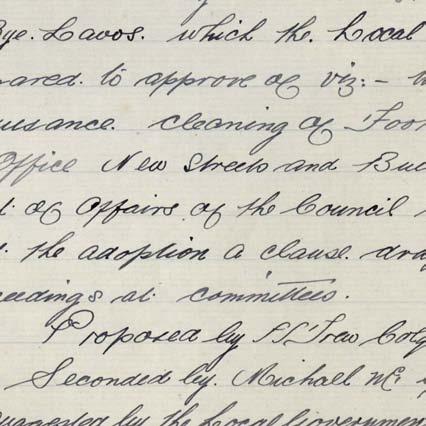 Bye. Laws. which the Local
to approve of viz:-
cleaning of
Office New Streets and
of Affairs of the Council
the adoption a clause.
at committees.
Proposed by
Seconded by. Michael Mc
by the Local Government